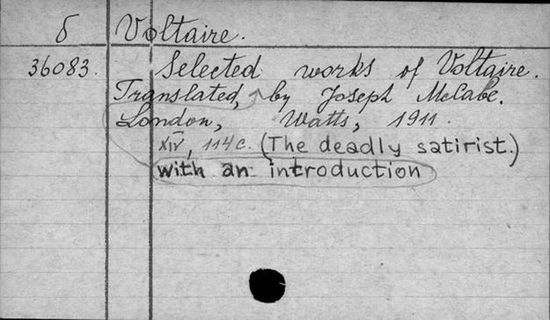 б Voltaire.
36083. Selected works of Voltaire.
Translated, by Joseph McCabe.
London, Watts, 1911.
XIV, 114 c. (The deadly satirist.)
with an introduction